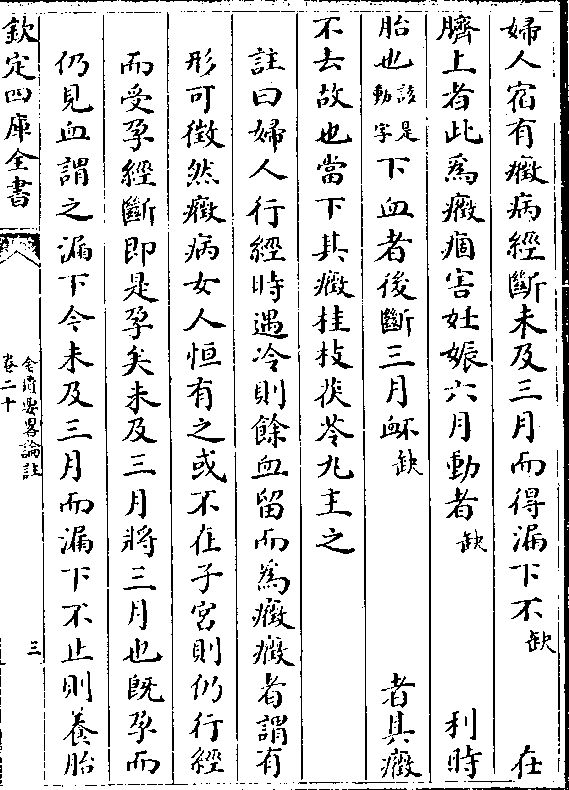 婦人宿有癥病經斷未及三月而得漏下不缺 在
臍上者此為癥痼害妊娠六月動者缺 利時
胎也該是動字下血者後斷三月衃缺 者其癥
不去故也當下其癥桂枝茯苓丸主之
註曰婦人行經時遇冷則餘血留而為癥癥者謂有
形可徴然癥病女人恒有之或不在子宮則仍行經
而受孕經斷即是孕矣未及三月將三月也既孕而
仍見血謂之漏下今未及三月而漏下不止則養胎
欽定四庫全書
金匱要畧論註
卷二十
三